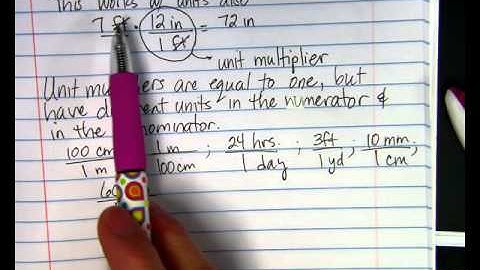 This works w/ units also
7 ft · 12 in / 1 ft = 72 in
unit multiplier
Unit mul ers are equal to one, but
have d ent units in the numerator &
in the ominator.
100 cm / 1 m 1 m / 100 cm ; 24 hrs. / 1 day ; 3 ft / 1 yd ; 10 mm / 1 cm ;
60